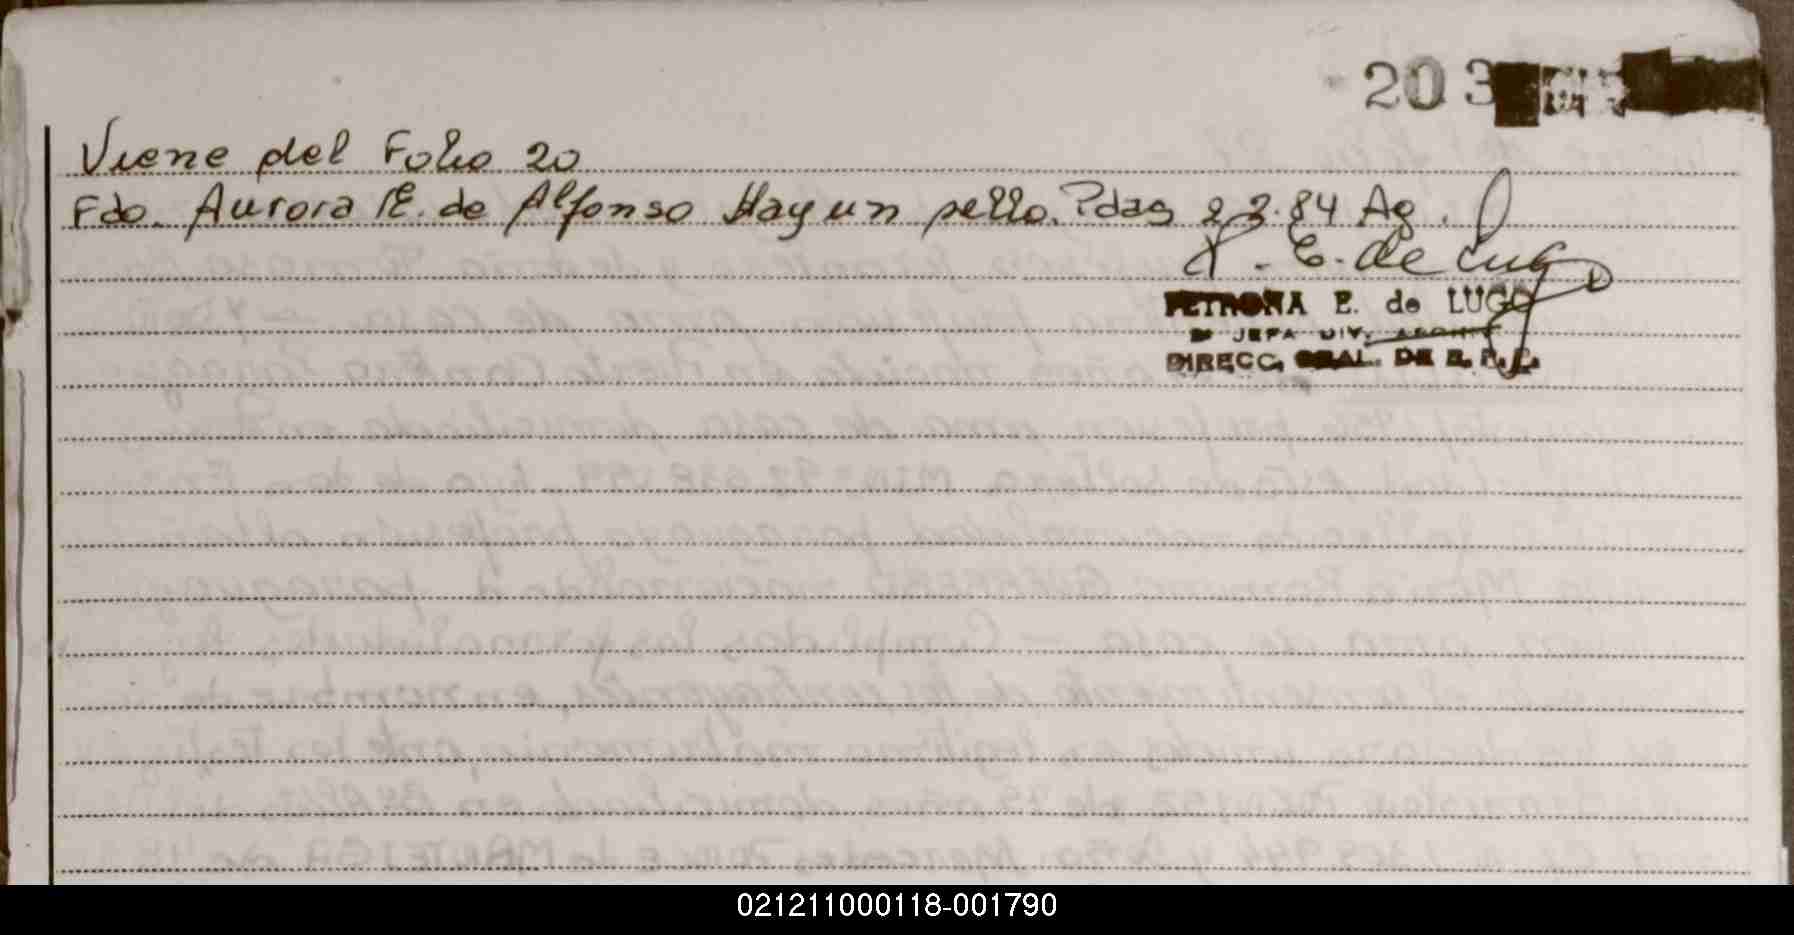 203
Viene del Folio 20
Fdo. Aurora E. de Alfonso Hay un sello. Pdas 2.3.84 Ag.
P. E. de Lugo
PETRONA E. de LUGO
JEFA DIV. ARCHIV
DIRECC. GRAL. DE E. P.
021211000118-001790